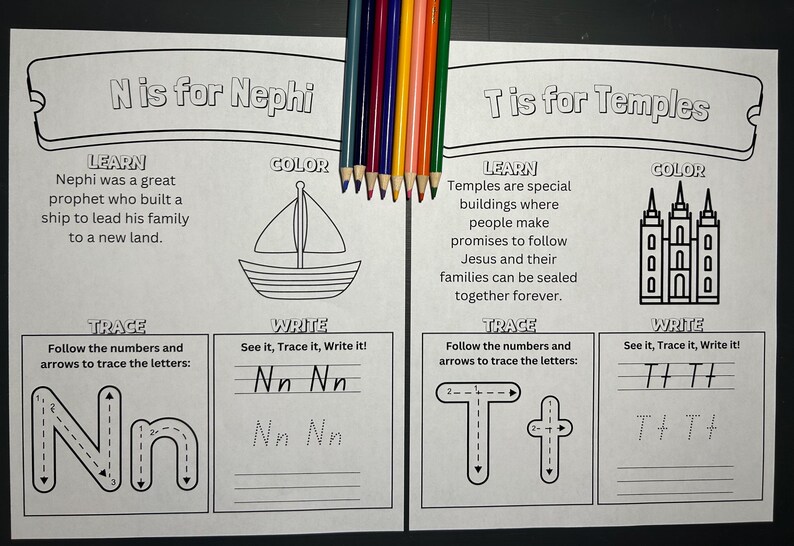 N is for Nephi
LEARN
Nephi was a great
prophet who built a
ship to lead his family
to a new land.
COLOR
TRACE
Follow the numbers and
arrows to trace the letters:
1 2 3
Nn
1 2
WRITE
See it, Trace it, Write it!
Nn Nn
Nn Nn
T is for Temples
LEARN
Temples are special
buildings where
people make
promises to follow
Jesus and their
families can be sealed
together forever.
COLOR
TRACE
Follow the numbers and
arrows to trace the letters:
2 1
Tt
1
2
WRITE
See it, Trace it, Write it!
Tt Tt
Tt Tt